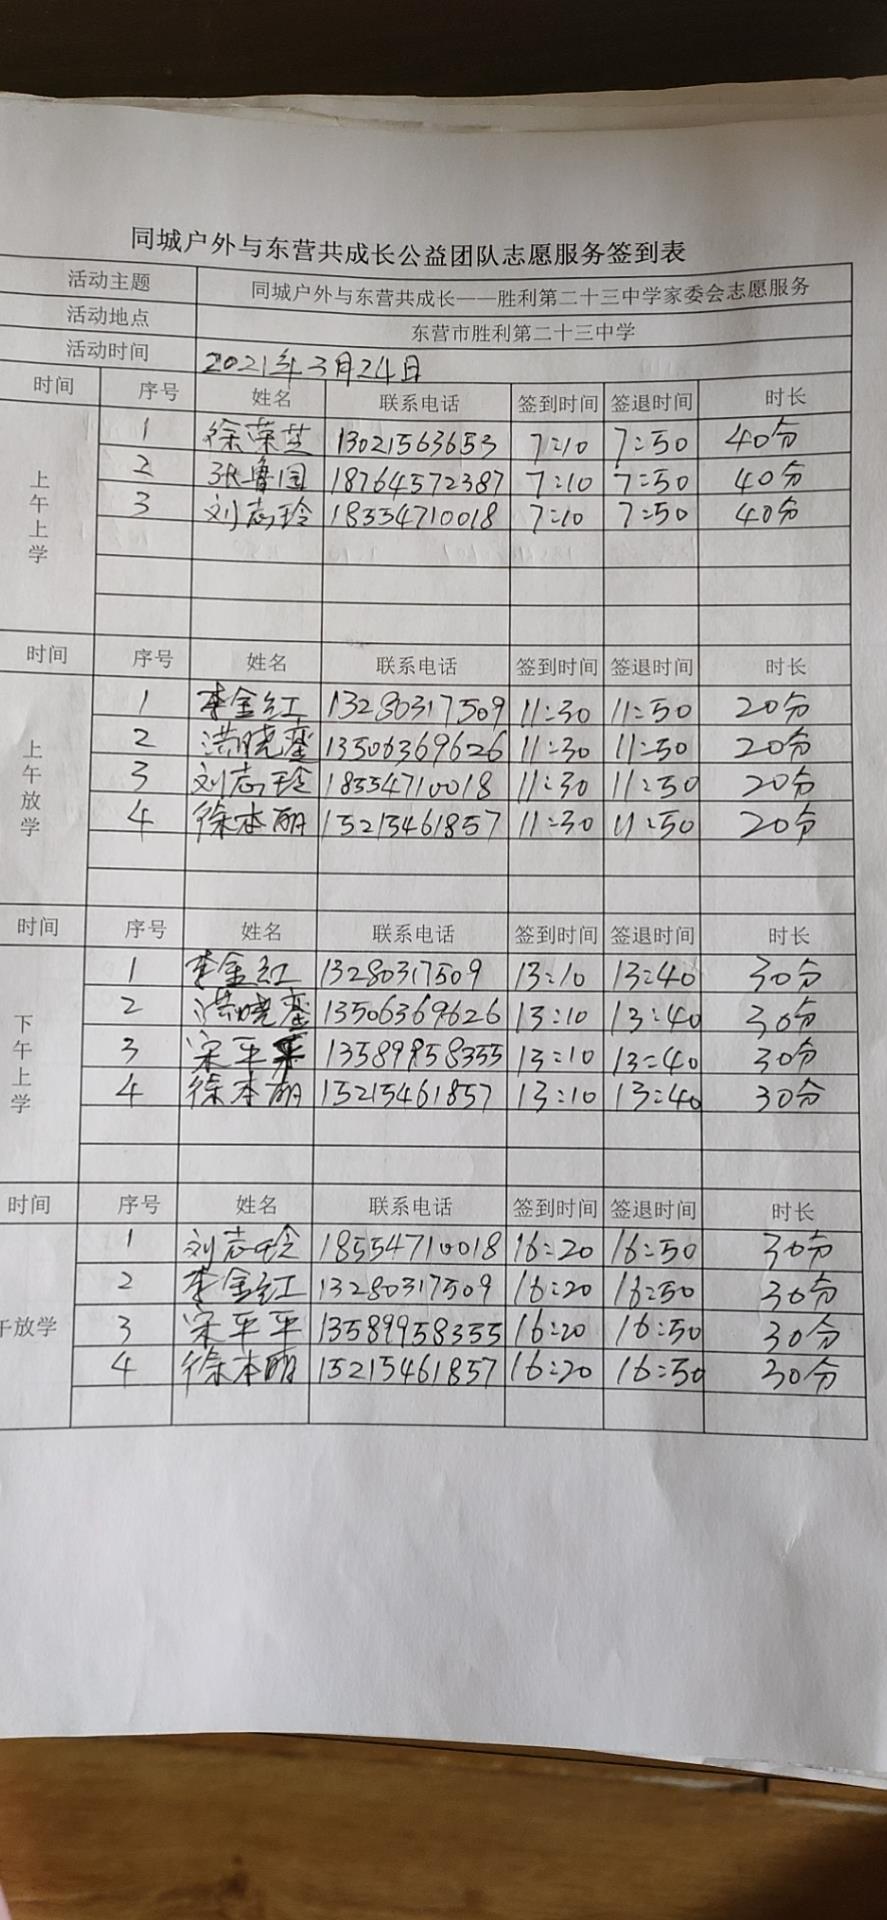 同城户外与东营共成长公益团队志愿服务签到表
活动主题 同城户外与东营共成长——胜利第二十三中学家委会志愿服务
活动地点 东营市胜利第二十三中学
活动时间 2021年3月24日
时间 序号 姓名 联系电话 签到时间 签退时间 时长
上午上学
1 徐荣芝 13021563653 7:10 7:50 40分
2 张鲁国 18764572387 7:10 7:50 40分
3 刘志玲 18554710018 7:10 7:50 40分
时间 序号 姓名 联系电话 签到时间 签退时间 时长
上午放学
1 李金红 13280317509 11:30 11:50 20分
2 洪晓 13506369626 11:30 11:50 20分
3 刘志玲 18554710018 11:30 11:50 20分
4 徐本丽 15215461857 11:30 11:50 20分
时间 序号 姓名 联系电话 签到时间 签退时间 时长
下午上学
1 李金红 13280317509 13:10 13:40 30分
2 洪晓 13506369626 13:10 13:40 30分
3 宋平 13589958355 13:10 13:40 30分
4 徐本丽 15215461857 13:10 13:40 30分
时间 序号 姓名 联系电话 签到时间 签退时间 时长
午放学
1 刘志玲 18554710018 16:20 16:50 30分
2 李金红 13280317509 16:20 16:50 30分
3 宋平平 13589958355 16:20 16:50 30分
4 徐本丽 15215461857 16:20 16:50 30分